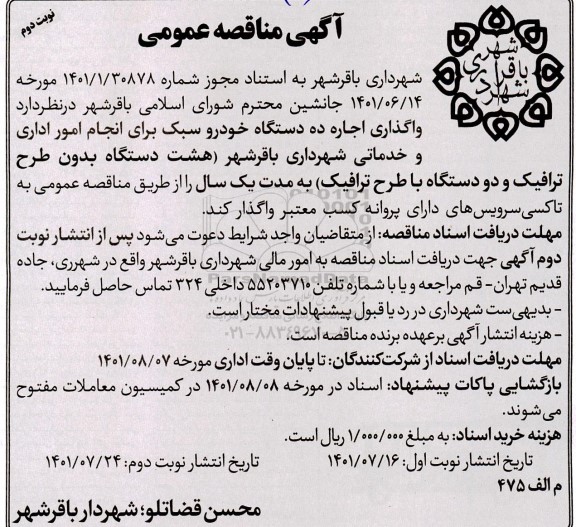 نوبت دوم
آگهی مناقصه عمومی
شهرداری باقرشهر
شهرداری باقرشهر به استناد مجوز شماره ۱۴۰۱/۱/۳۰۸۷۸ مورخه
۱۴۰۱/۰۶/۱۴ جانشین محترم شورای اسلامی باقرشهر درنظردارد
واگذاری اجاره ده دستگاه خودرو سبک برای انجام امور اداری
و خدماتی شهرداری باقرشهر (هشت دستگاه بدون طرح
ترافیک و دو دستگاه با طرح ترافیک) به مدت یک سال را از طریق مناقصه عمومی به
تاکسی‌سرویس‌های دارای پروانه کسب معتبر واگذار کند.
مهلت دریافت اسناد مناقصه: از متقاضیان واجد شرایط دعوت می‌شود پس از انتشار نوبت
دوم آگهی جهت دریافت اسناد مناقصه به امور مالی شهرداری باقرشهر واقع در شهرری، جاده
قدیم تهران- قم مراجعه و یا با شماره تلفن ۵۵۲۰۳۷۱۰ داخلی ۳۲۴ تماس حاصل فرمایید.
- بدیهی‌ست شهرداری در رد یا قبول پیشنهادات مختار است.
- هزینه انتشار آگهی برعهده برنده مناقصه است.
مهلت دریافت اسناد از شرکت‌کنندگان: تا پایان وقت اداری مورخه ۱۴۰۱/۰۸/۰۷
بازگشایی پاکات پیشنهاد: اسناد در مورخه ۱۴۰۱/۰۸/۰۸ در کمیسیون معاملات مفتوح
می‌شوند.
هزینه خرید اسناد: به مبلغ ۱/۰۰۰/۰۰۰ ریال است.
تاریخ انتشار نوبت اول: ۱۴۰۱/۰۷/۱۶ تاریخ انتشار نوبت دوم: ۱۴۰۱/۰۷/۲۴
م الف ۴۷۵
محسن قضاتلو؛ شهردار باقرشهر